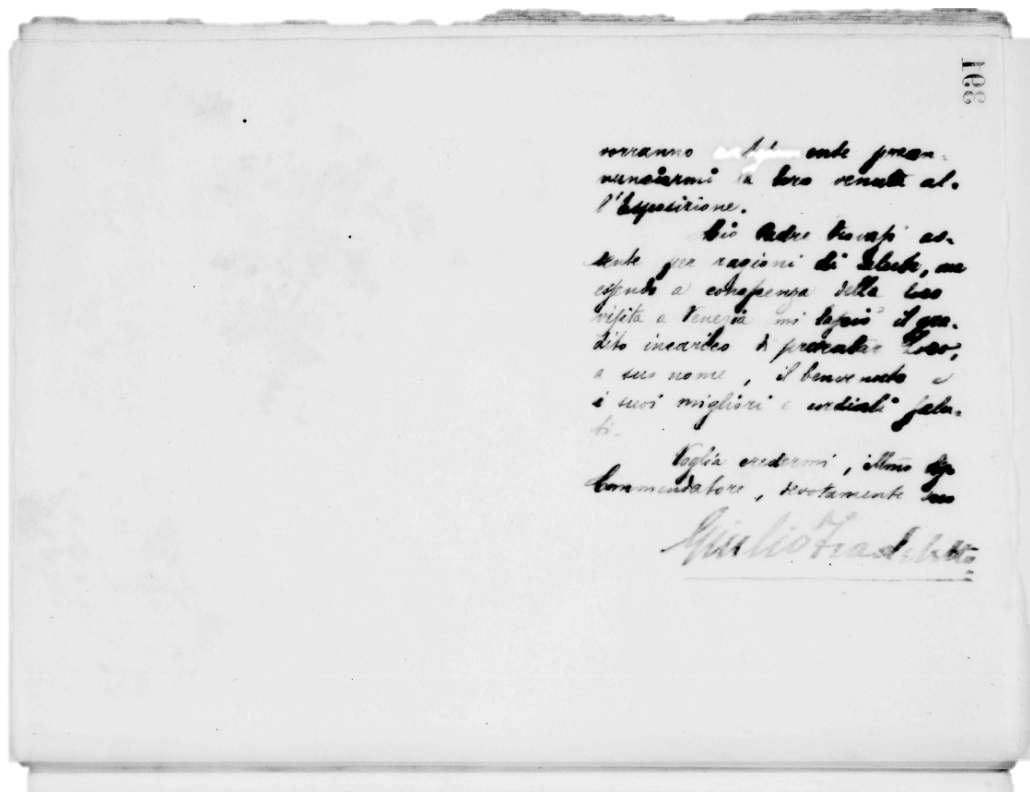 163
vorranno prean-
nunciarmi la loro venuta al-
l'Esposizione.
Mio Padre trovasi as-
sente per ragioni di salute, ma
essendo a conoscenza della loro
visita a Venezia mi lasciò il gra-
dito incarico di presentar Loro,
a suo nome, il benvenuto e
i suoi migliori e cordiali salu-
ti.
Voglia credermi, illmo Sig.
Commendatore, devotamente suo
Giulio Fradeletto